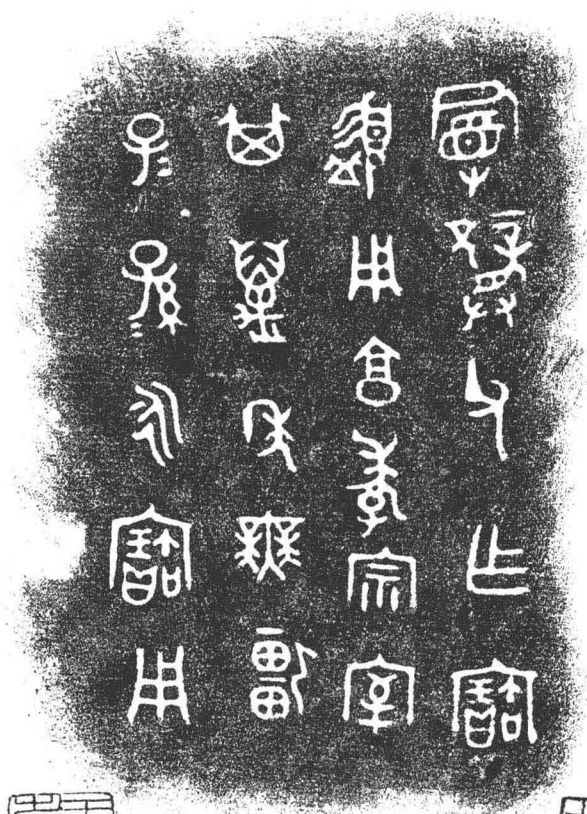 曼龏父乍寶
盨用亯孝宗室
其萬年無疆
子=孫=永寶用